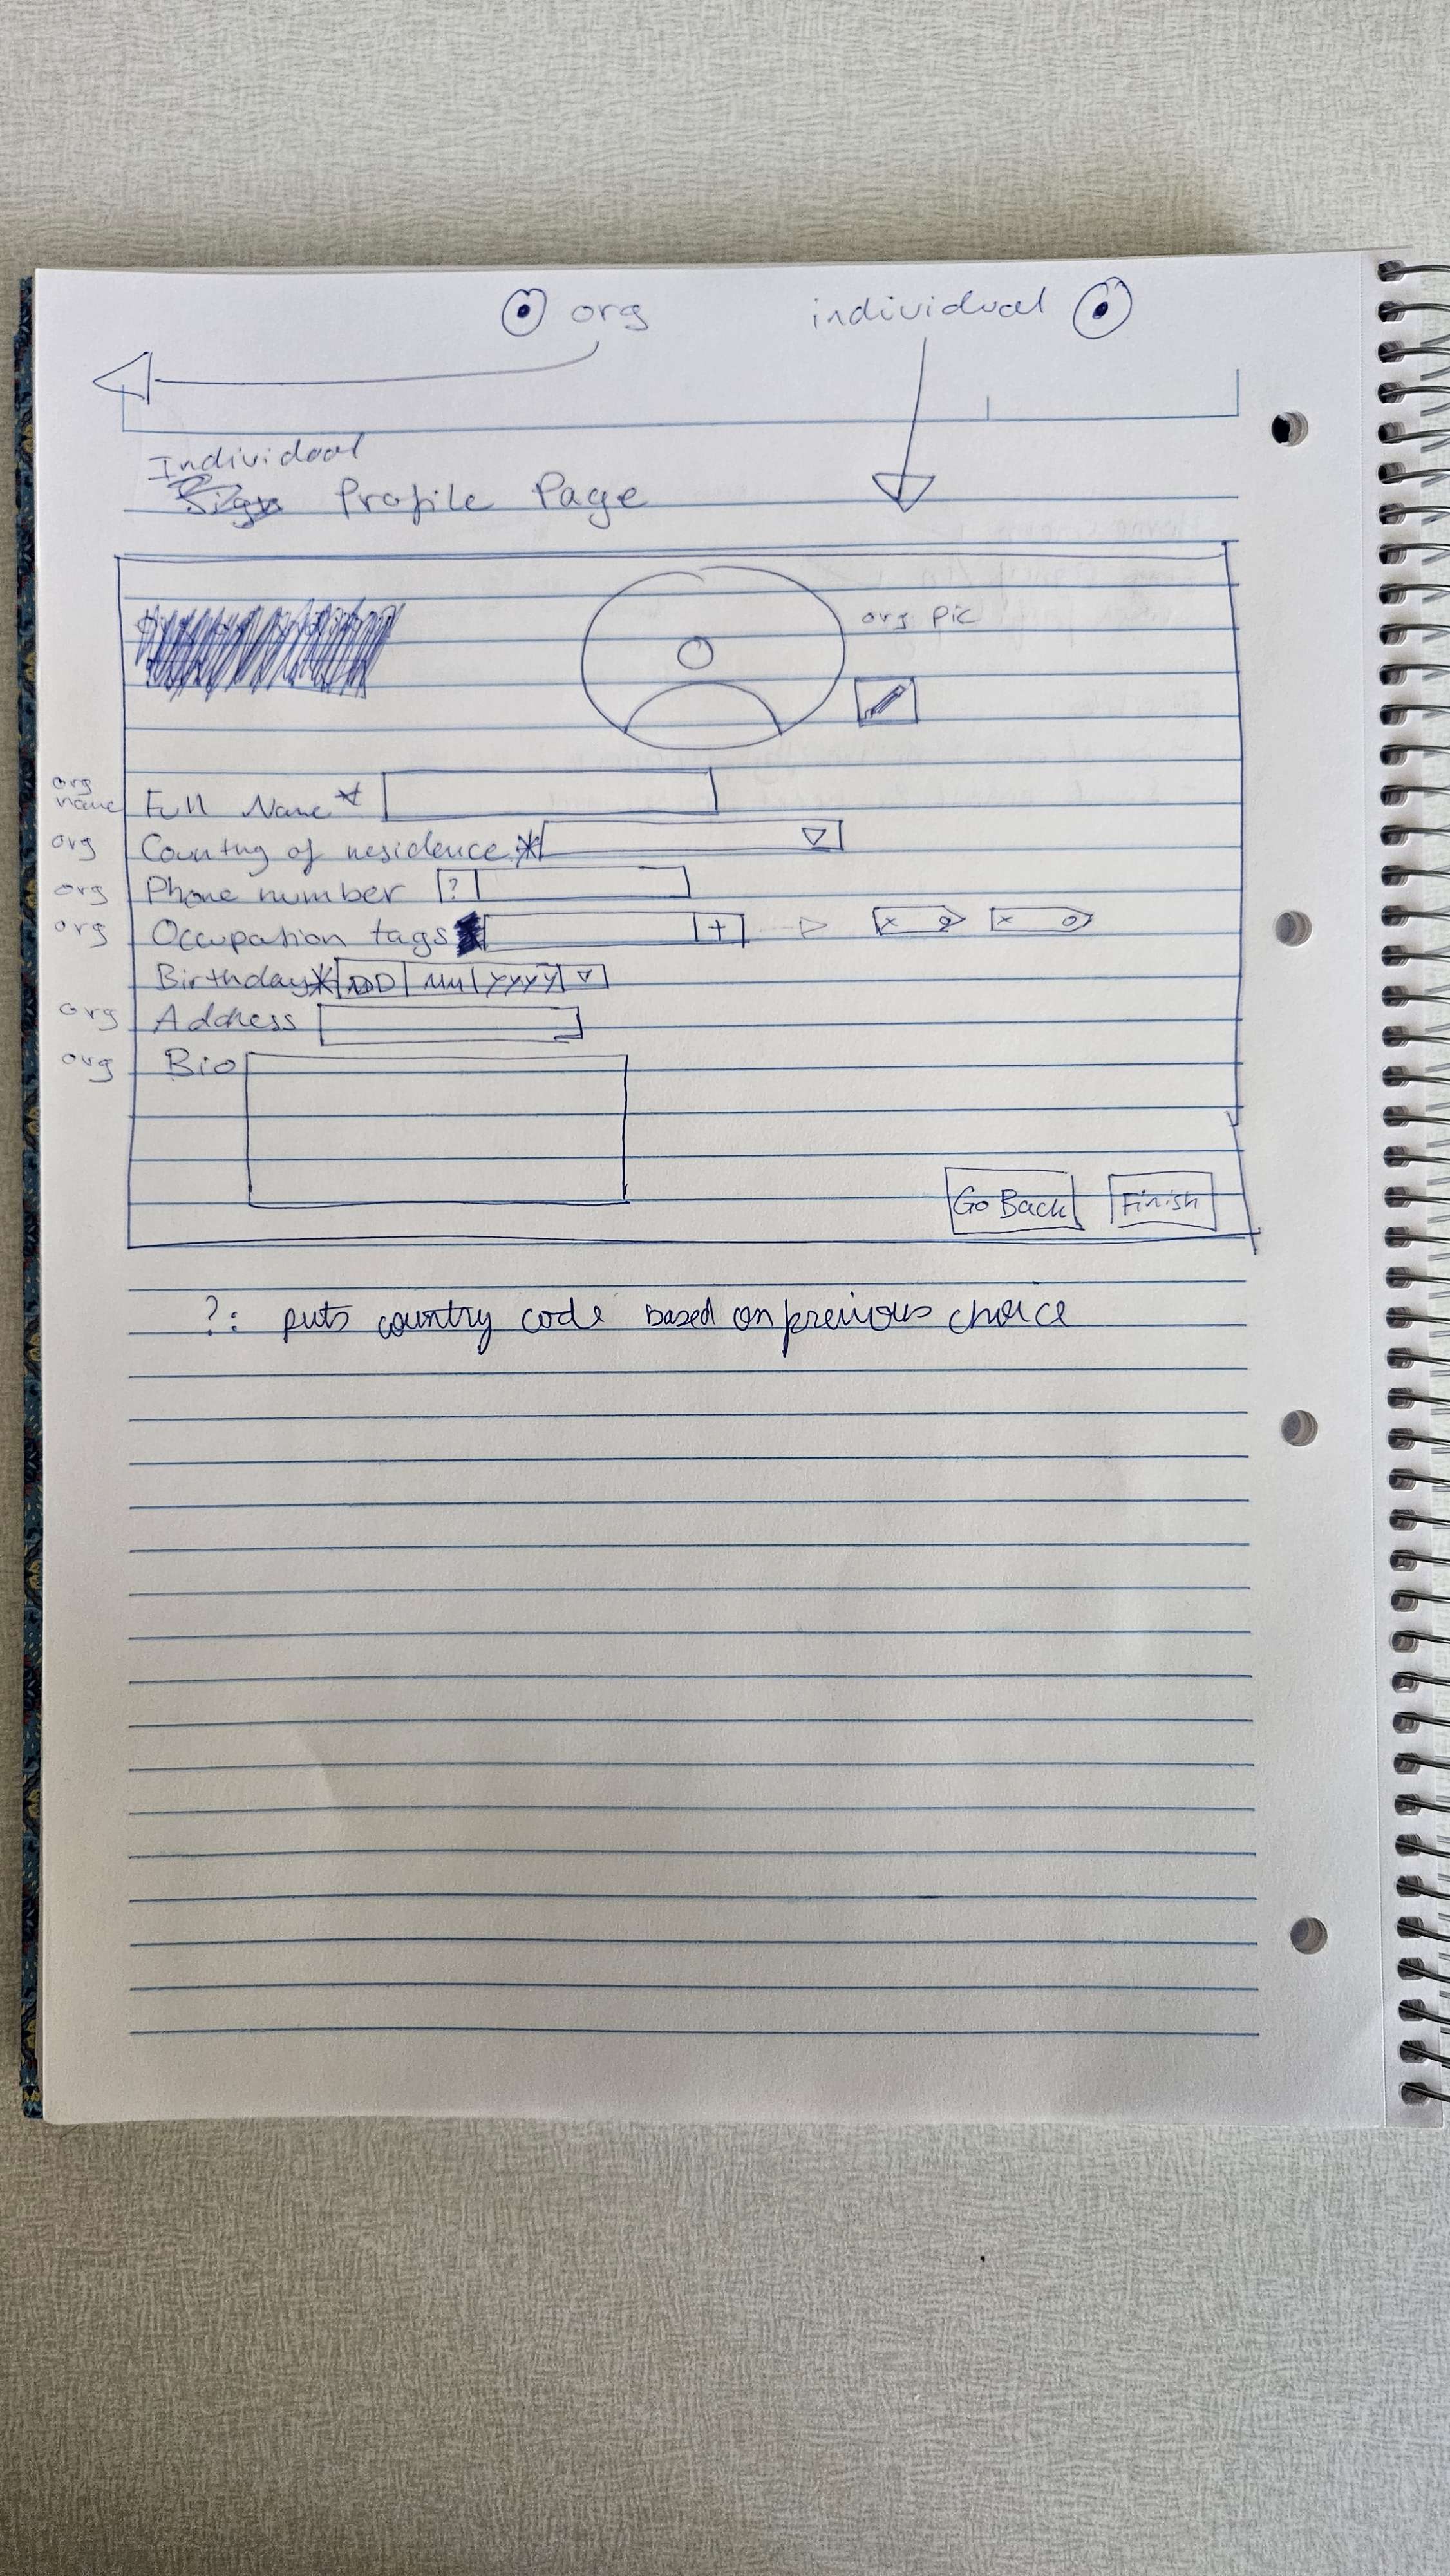 org individual
Individual
Profile Page
org pic
org name Full Name *
org Country of residence *
org Phone number ?
org Occupation tags + x x
Birthday * DD MM YYYY
org Address
org Bio
Go Back Finish
?: puts country code based on previous choice